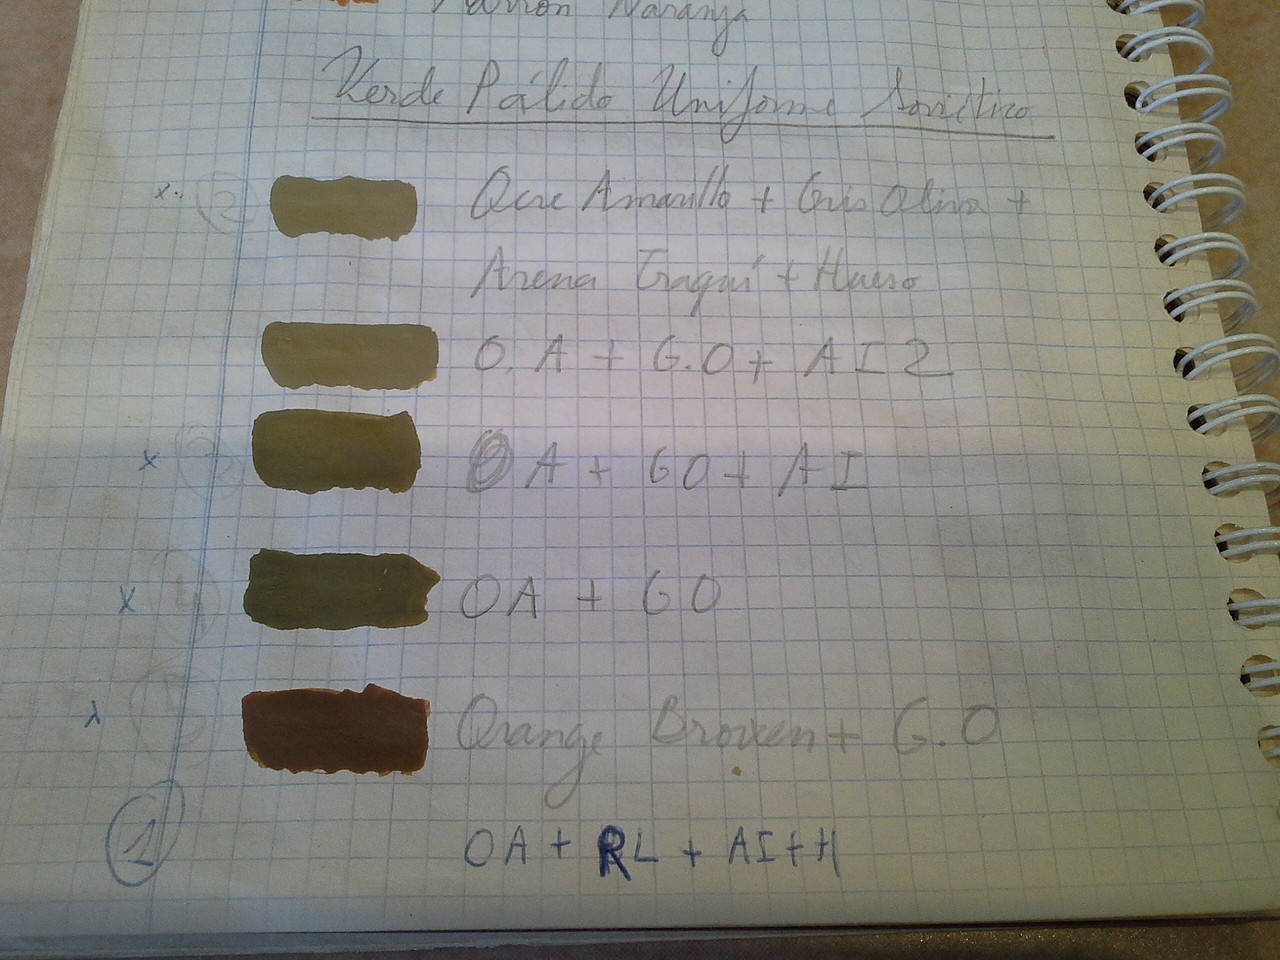 Marrón Naranja
Verde Pálido Uniforme Soviético
x. 2 Ocre Amarillo + Gris Oliva +
Arena Iraquí + Hueso
O. A + G.O + AI 2
x 3 OA + GO + AI
x 4 OA + GO
x Orange Browen + G.O
1 OA + RL + AI + H